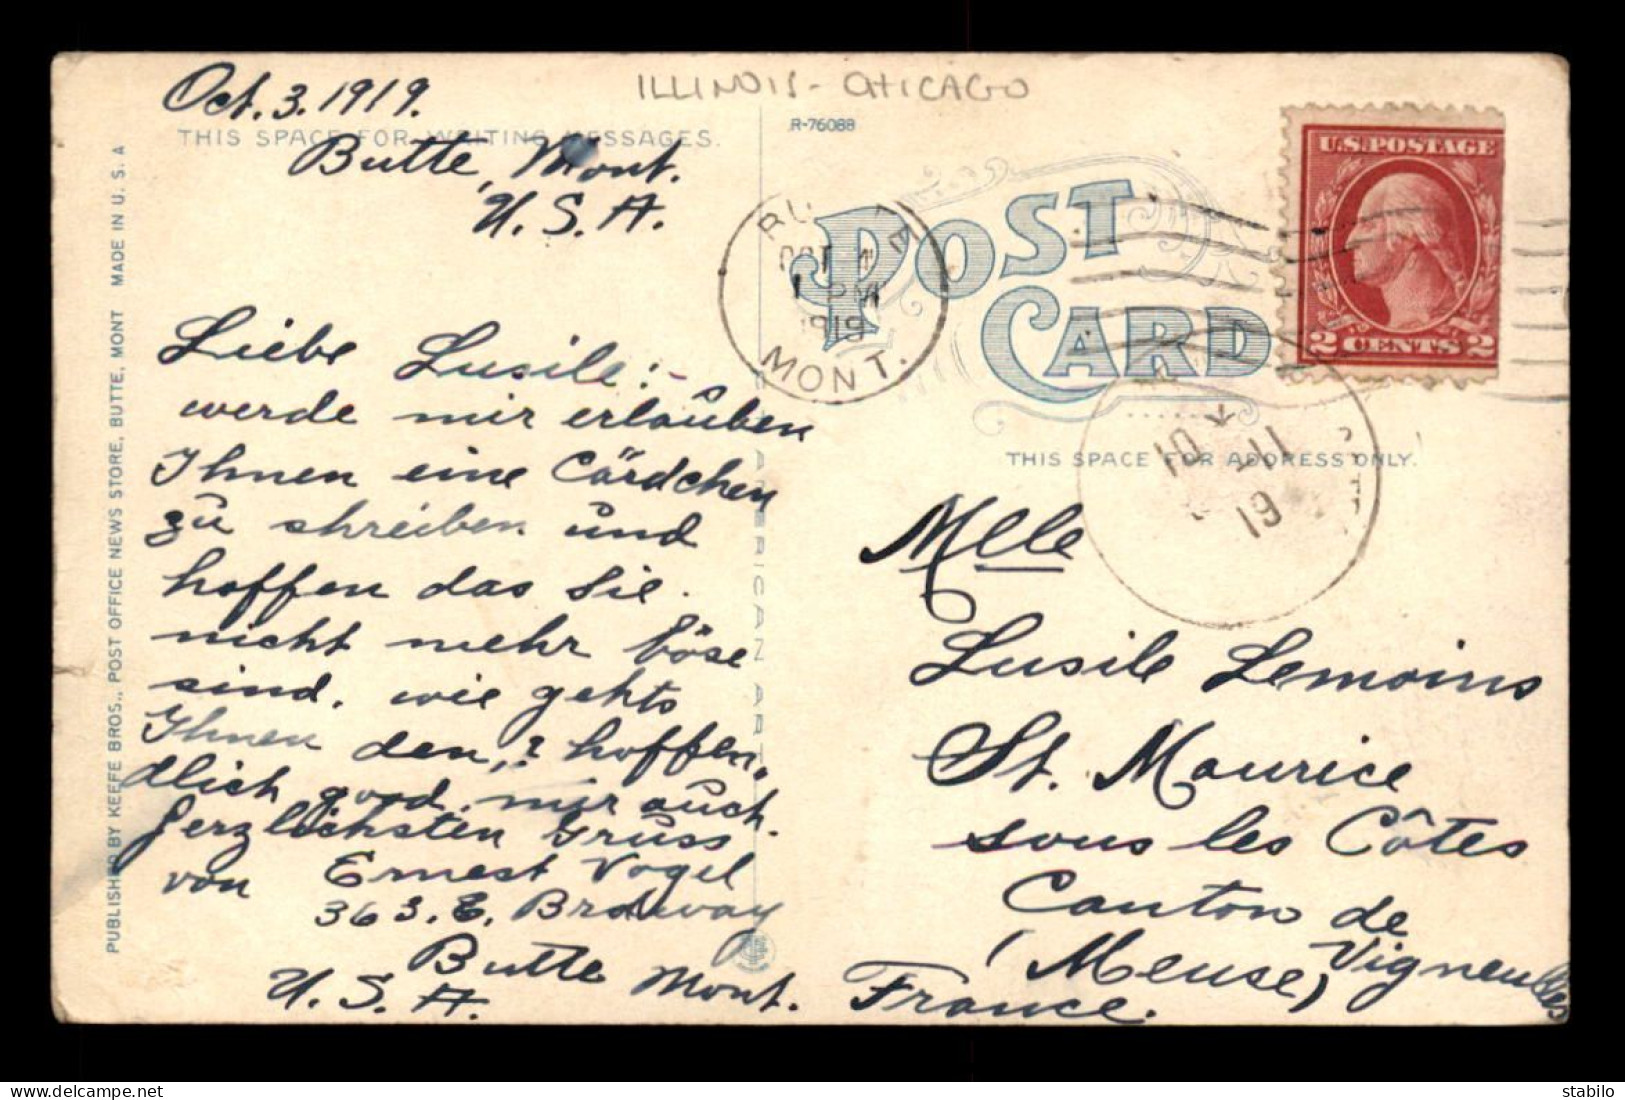 ILLINOIS - CHICAGO
Oct. 3. 1919.
THIS SPACE FOR WRITING MESSAGES.
Butte, Mont.
U. S. A.
Liebe Lusile:-
werde mir erlauben
Ihnen eine Cärdchen
zu shreiben und
hoffen das Sie
nicht mehr böse
sind. wie gehts
Ihnen den,? hoffen,
dlich good. mir auch.
Herzlichsten Gruss
von Ernest Vogel
363. E. Brdway
Butte Mont.
U. S. A.
PUBLISHED BY KEEFE BROS., POST OFFICE NEWS STORE, BUTTE, MONT MADE IN U. S. A
R-76088
POST CARD
MONT.
1 PM
1919
U.S. POSTAGE
2 CENTS 2
10 - 11
19
THIS SPACE FOR ADDRESS ONLY.
Melle
Lusile Lemoins
St. Maurice
sous les Côtes
Canton de
Vigneulles
(Meuse)
France.
stabilo